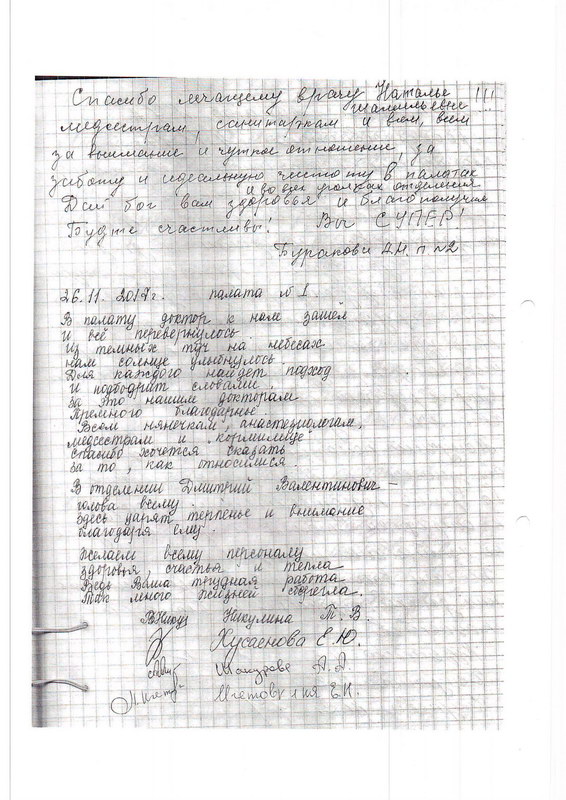 Спасибо лечащему врачу Наталье !!!
Шамильевне
медсестрам, санитаркам и всем, всем
за внимание и чуткое отношение, за
заботу и идеальную чистоту в палатах
и во всех уголках отделения
Дай бог вам здоровья и благополучия
Будьте счастливы! Вы СУПЕР!
п №2
26.11.2017г. палата №1.
В палату доктор к нам зашёл
И всё перевернулось
Из темных туч на небесах
нам солнце улыбнулось
Для каждого найдет подход
И подбодрит словами.
За это нашим докторам
Премного благодарны.
Всем нянечкам, анастезиологам,
медсестрам и "кормилице"
спасибо хочется сказать
за то, как относились.
В отделении Дмитрий Валентинович –
голова всему.
Здесь царят терпенье и внимание
благодаря ему.
Желаем всему персоналу
здоровья, счастья и тепла
Ведь Ваша трудная работа
Так много жизней сберегла.
Никулина Т. В.
Хусаенова Е. Ю.
А. А.
Е.Н.